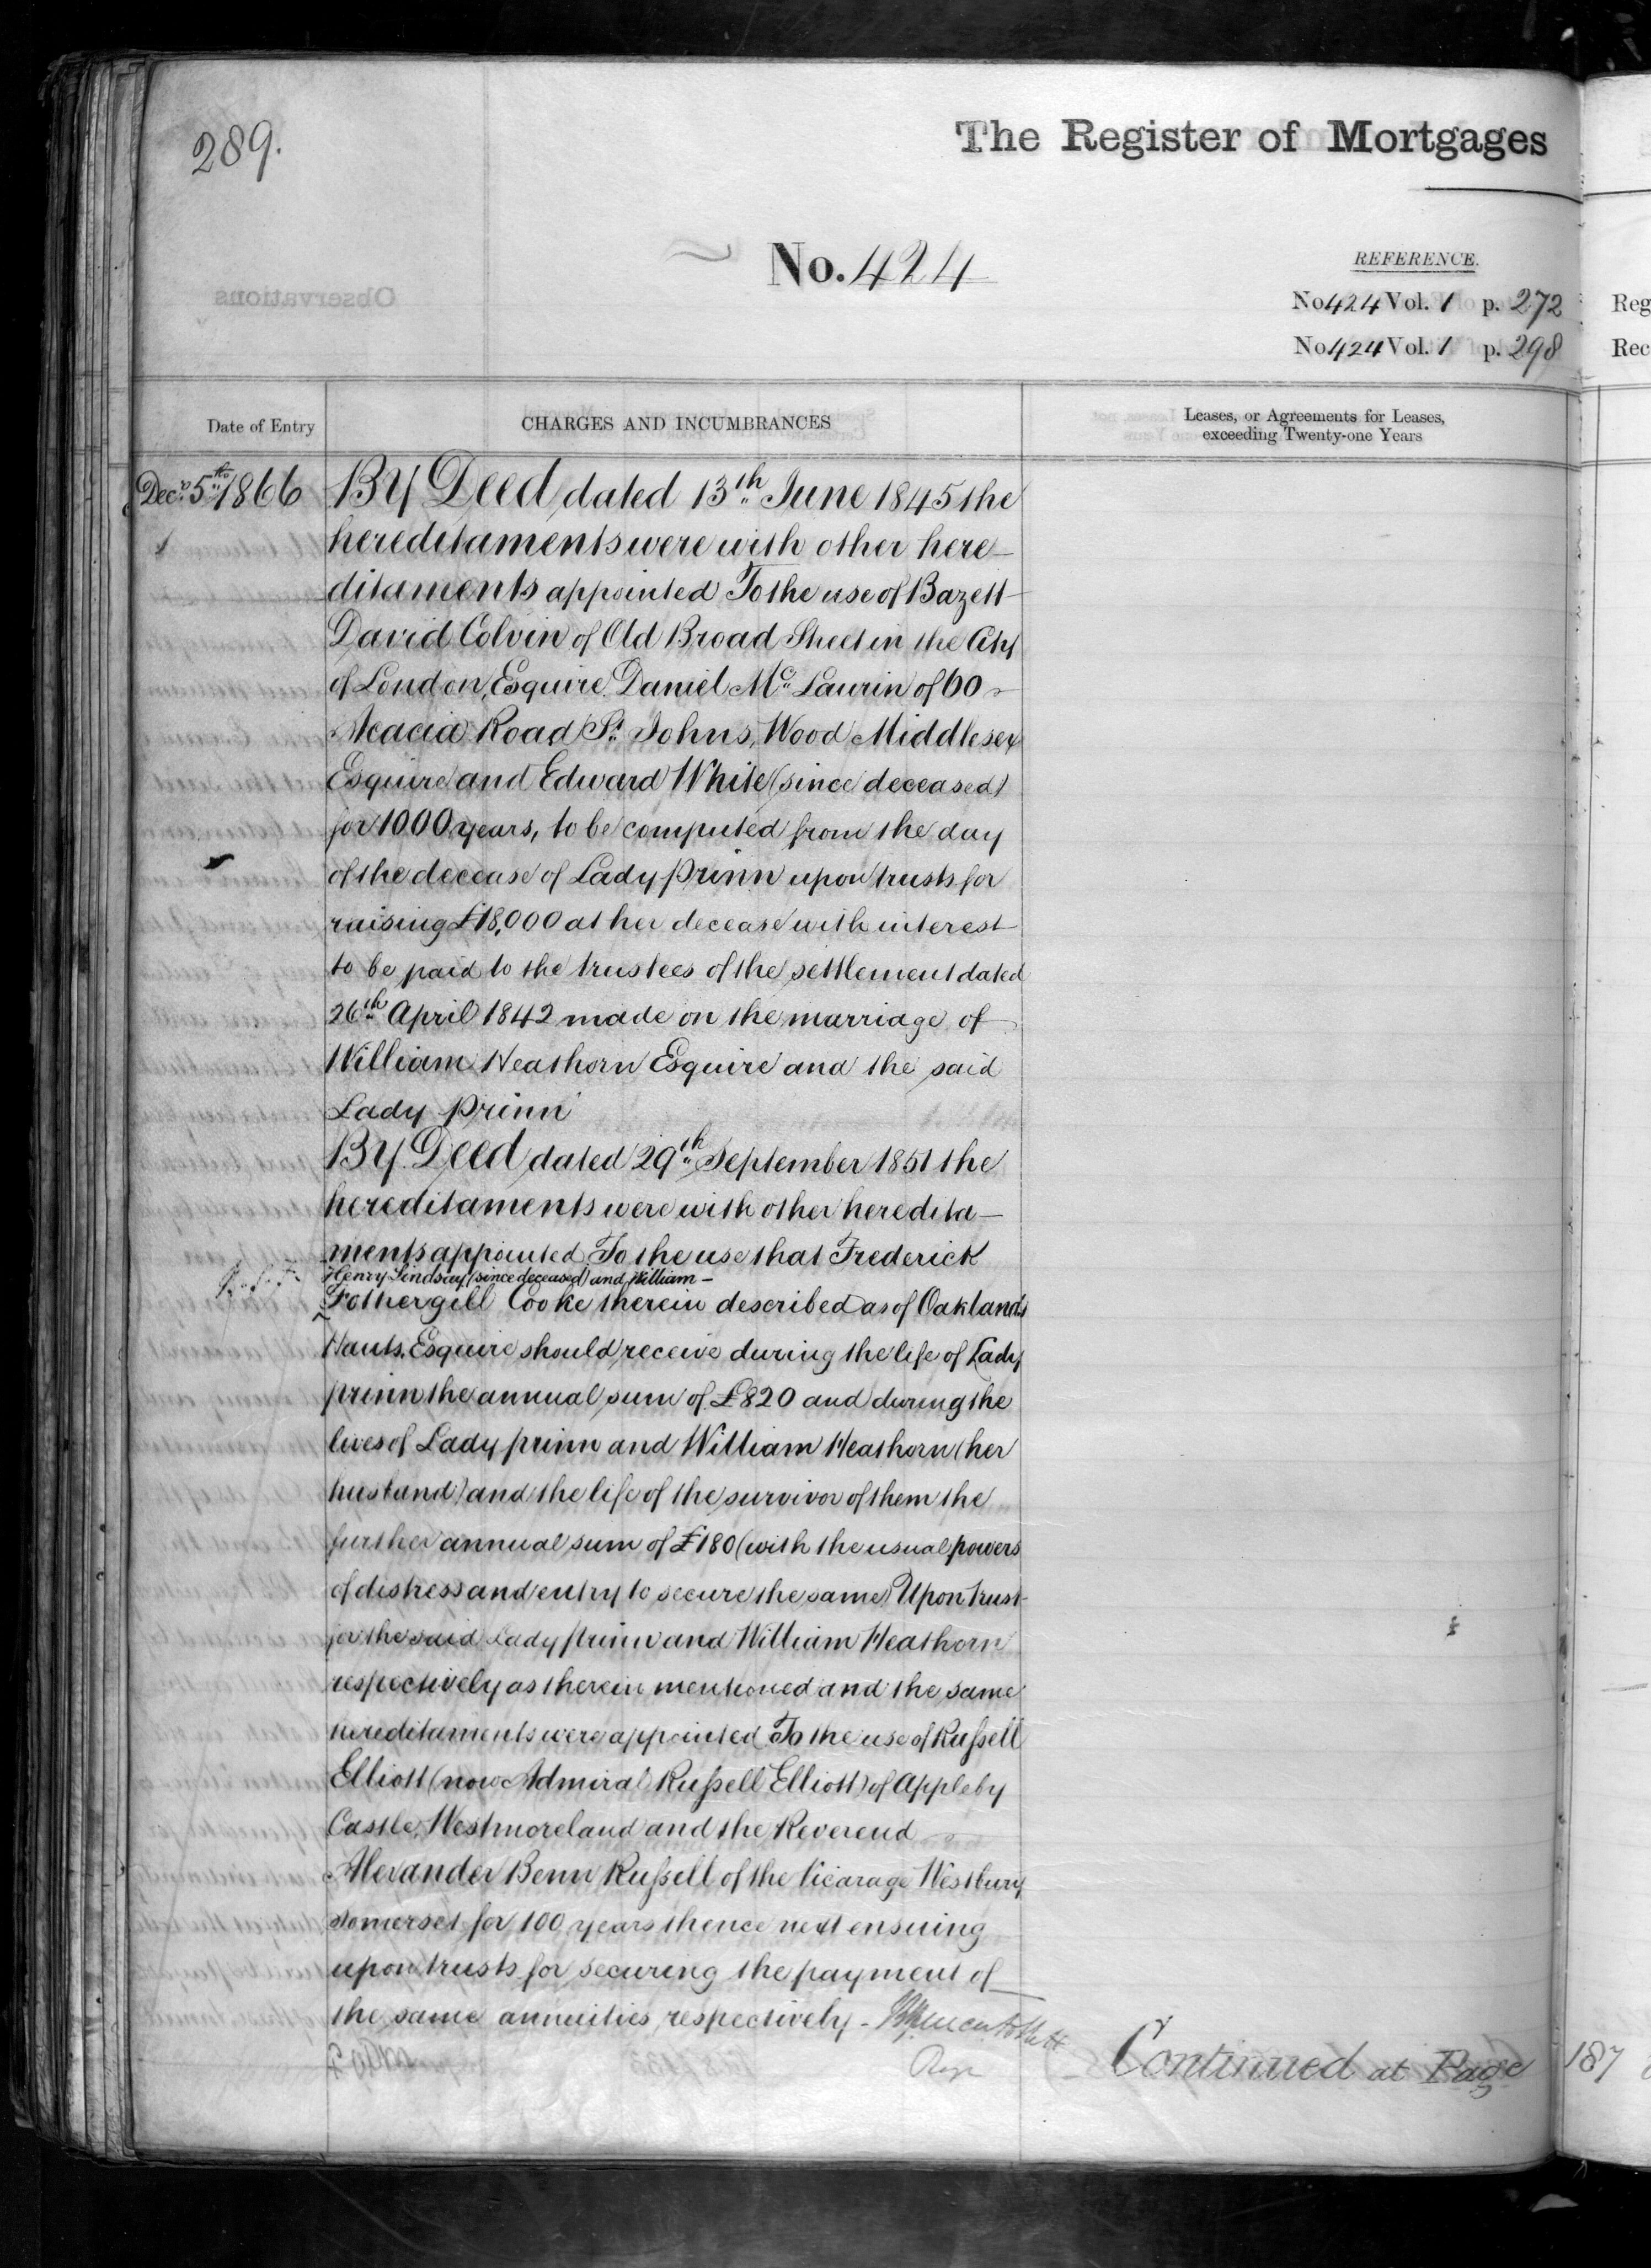 289.
The Register of Mortgages
No. 424
REFERENCE.
No 424 Vol. 1 p. 272
No 424 Vol. 1 p. 298
Reg
Rec
Observations
Date of Entry
CHARGES AND INCUMBRANCES
Leases, or Agreements for Leases,
exceeding Twenty-one Years
Decr. 5th 1866
By Deed dated 13th June 1845 the
hereditaments were with other here-
ditaments appointed To the use of Bazett
David Colvin of Old Broad Street in the City
of London, Esquire Daniel Mc Laurin of 60
Acacia Road St. Johns, Wood Middlesex
Esquire and Edward White (since deceased)
for 1000 years, to be computed from the day
of the decease of Lady Prinn upon trusts for
raising £18,000 at her decease with interest
to be paid to the trustees of the settlement dated
26th April 1842 made on the marriage of
William Heathorn Esquire and the said
Lady Prinn
By Deed dated 29th September 1851 the
hereditaments were with other heredita-
ments appointed To the use that Frederick
Henry Lindsay (since deceased) and William -
Fothergill Cooke therein described as of Oaklands
Hants, Esquire should receive during the life of Lady
prinn the annual sum of £820 and during the
lives of Lady prinn and William Heathorn (her
husband) and the life of the survivor of them the
further annual sum of £180 (with the usual powers
of distress and entry to secure the same) Upon trust
for the said Lady prinn and William Heathorn
respectively as therein mentioned and the same
hereditaments were appointed To the use of Russell
Elliott (now Admiral Russell Elliott) of Appleby
Castle, Westmoreland and the Reverend
Alexander Benn Russell of the Vicarage Westbury
Somerset for 100 years thence next ensuing
upon trusts for securing the payment of
the same annuities respectively -
Regr
Continued at Page 187